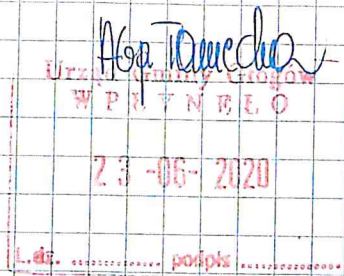 Urząd Gminy Głogów
WPŁYNĘŁO
23 -06- 2020
L.dz. ............ podpis ................